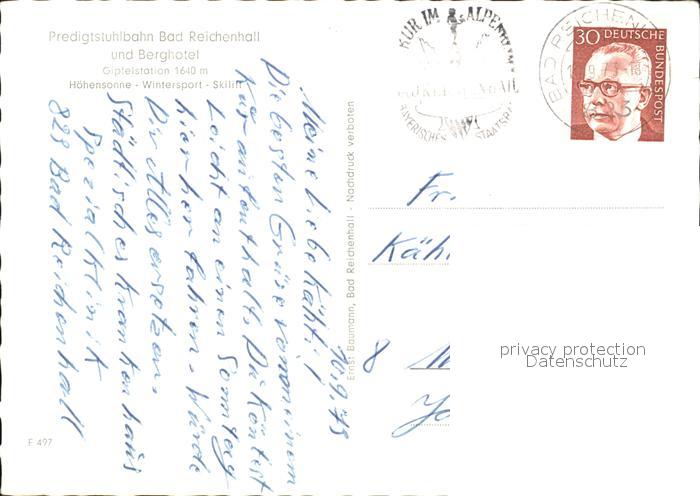 Predigtstuhlbahn Bad Reichenhall
und Berghotel
Gipfelstation 1640 m
Höhensonne - Wintersport - Skilift
KUR IM ALPENKLIMA
BAD REICHENHALL
BAYERISCHES STAATSBAD
BAD REICHENHALL
30 DEUTSCHE
BUNDESPOST
10.9.73
Meine liebe Käthi!
Die besten Grüse von meinem
Kuraufenthalt. Du köntest
Leicht an einen Sonntag
hierher fahren. Würde
Dir Alles ersetzen.
Städtisches Krankenhaus
Spezialklinik
823 Bad Reichenhall
Ernst Baumann, Bad Reichenhall - Nachdruck verboten
Fr.
Käh
8 M
F 497
privacy protection
Datenschutz